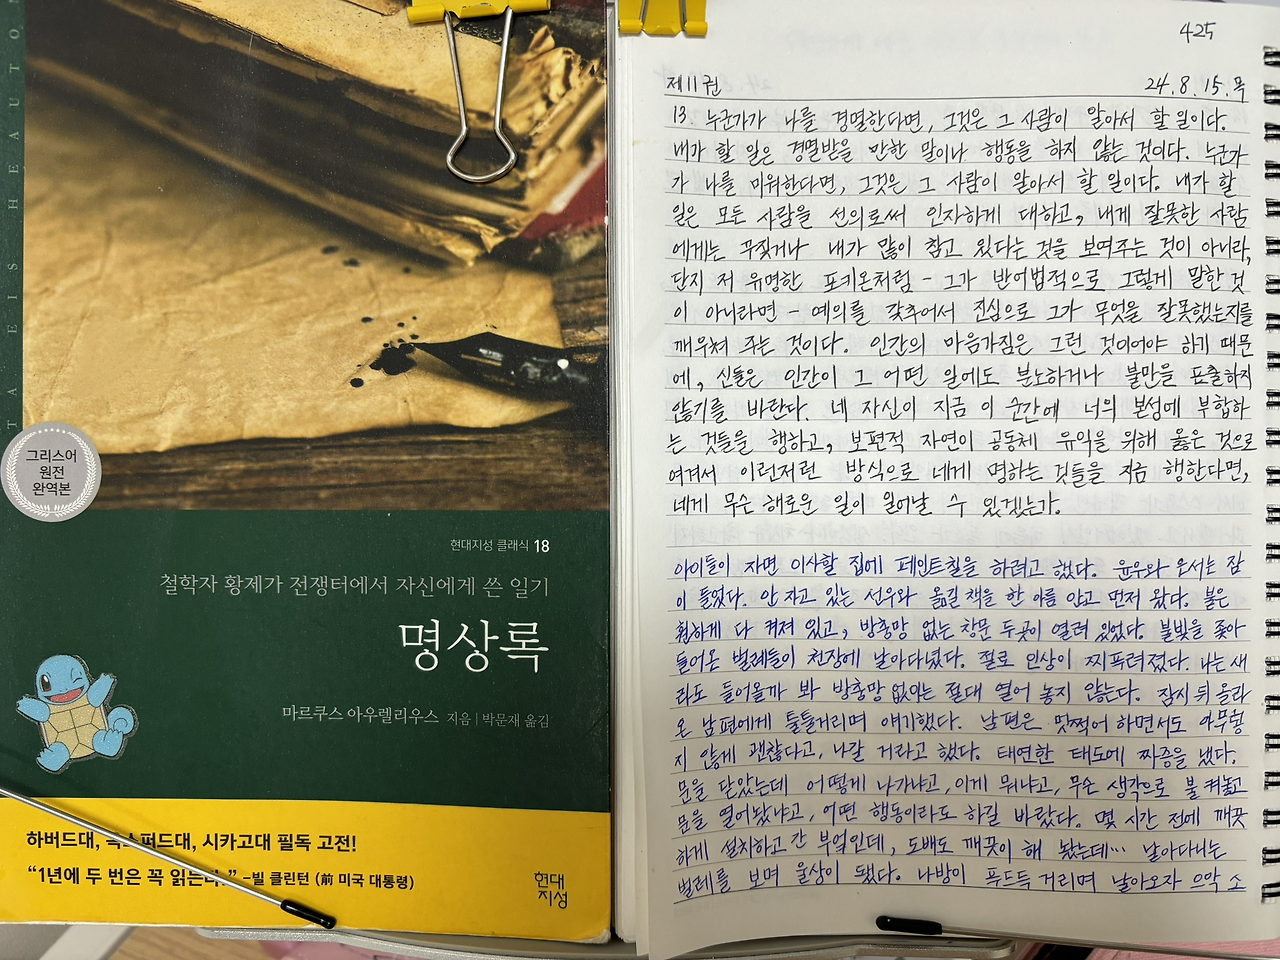 TA EIS HEAUTO
그리스어
원전
완역본
현대지성 클래식 18
철학자 황제가 전쟁터에서 자신에게 쓴 일기
명상록
마르쿠스 아우렐리우스 지음 | 박문재 옮김
하버드대, 옥스퍼드대, 시카고대 필독 고전!
“1년에 두 번은 꼭 읽는다.” –빌 클린턴 (前 미국 대통령)
현대
지성
425
제11권 24.8.15.목
13. 누군가가 나를 경멸한다면, 그것은 그 사람이 알아서 할 일이다.
내가 할 일은 경멸받을 만한 말이나 행동을 하지 않는 것이다. 누군가
가 나를 미워한다면, 그것은 그 사람이 알아서 할 일이다. 내가 할
일은 모든 사람을 선의로써 인자하게 대하고, 내게 잘못한 사람
에게는 꾸짖거나 내가 많이 참고 있다는 것을 보여주는 것이 아니라,
단지 저 유명한 포키온처럼 - 그가 반어법적으로 그렇게 말한 것
이 아니라면 - 예의를 갖추어서 진심으로 그가 무엇을 잘못했는지를
깨우쳐 주는 것이다. 인간의 마음가짐은 그런 것이어야 하기 때문
에, 신들은 인간이 그 어떤 일에도 분노하거나 불만을 표출하지
않기를 바란다. 네 자신이 지금 이 순간에 너의 본성에 부합하
는 것들을 행하고, 보편적 자연이 공동체 유익을 위해 옳은 것으로
여겨서 이런저런 방식으로 네게 명하는 것들을 지금 행한다면,
네게 무슨 해로운 일이 일어날 수 있겠는가.
아이들이 자면 이사할 집에 페인트칠을 하려고 했다. 윤우와 은서는 잠
이 들었다. 안 자고 있는 선우와 옮길 책을 한 아름 안고 먼저 왔다. 불은
훤하게 다 켜져 있고, 방충망 없는 창문 두곳이 열려 있었다. 불빛을 쫓아
들어온 벌레들이 천장에 날아다녔다. 절로 인상이 찌푸려졌다. 나는 새
라도 들어올까 봐 방충망 없이는 절대 열어 놓지 않는다. 잠시 뒤 올라
온 남편에게 툴툴거리며 얘기했다. 남편은 멋쩍어 하면서도 아무렇
지 않게 괜찮다고, 나갈 거라고 했다. 태연한 태도에 짜증을 냈다.
문을 닫았는데 어떻게 나가냐고, 이게 뭐냐고, 무슨 생각으로 불 켜놓고
문을 열어놨냐고, 어떤 행동이라도 하길 바랐다. 몇 시간 전에 깨끗
하게 설치하고 간 부엌인데, 도배도 깨끗이 해 놨는데… 날아다니는
벌레를 보며 울상이 됐다. 나방이 푸드득 거리며 날아오자 으악 소